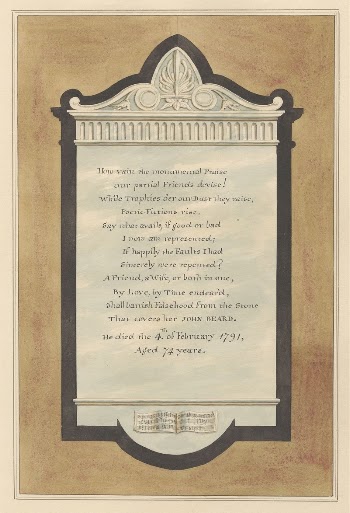 How vain the monumental Praise
our partial Friends devise!
While Trophies o'er our Dust they raise,
Poetic Fictions rise.
Say what avails, if good or bad
I now am represented;
If happily the Faults I had
Sincerely were repented?
A Friend, a Wife, or both in one,
By Love, by Time endear'd,
Shall banish Falsehood from the Stone
That covers her JOHN BEARD.
He died the 4th of February 1791,
Aged 74 years.